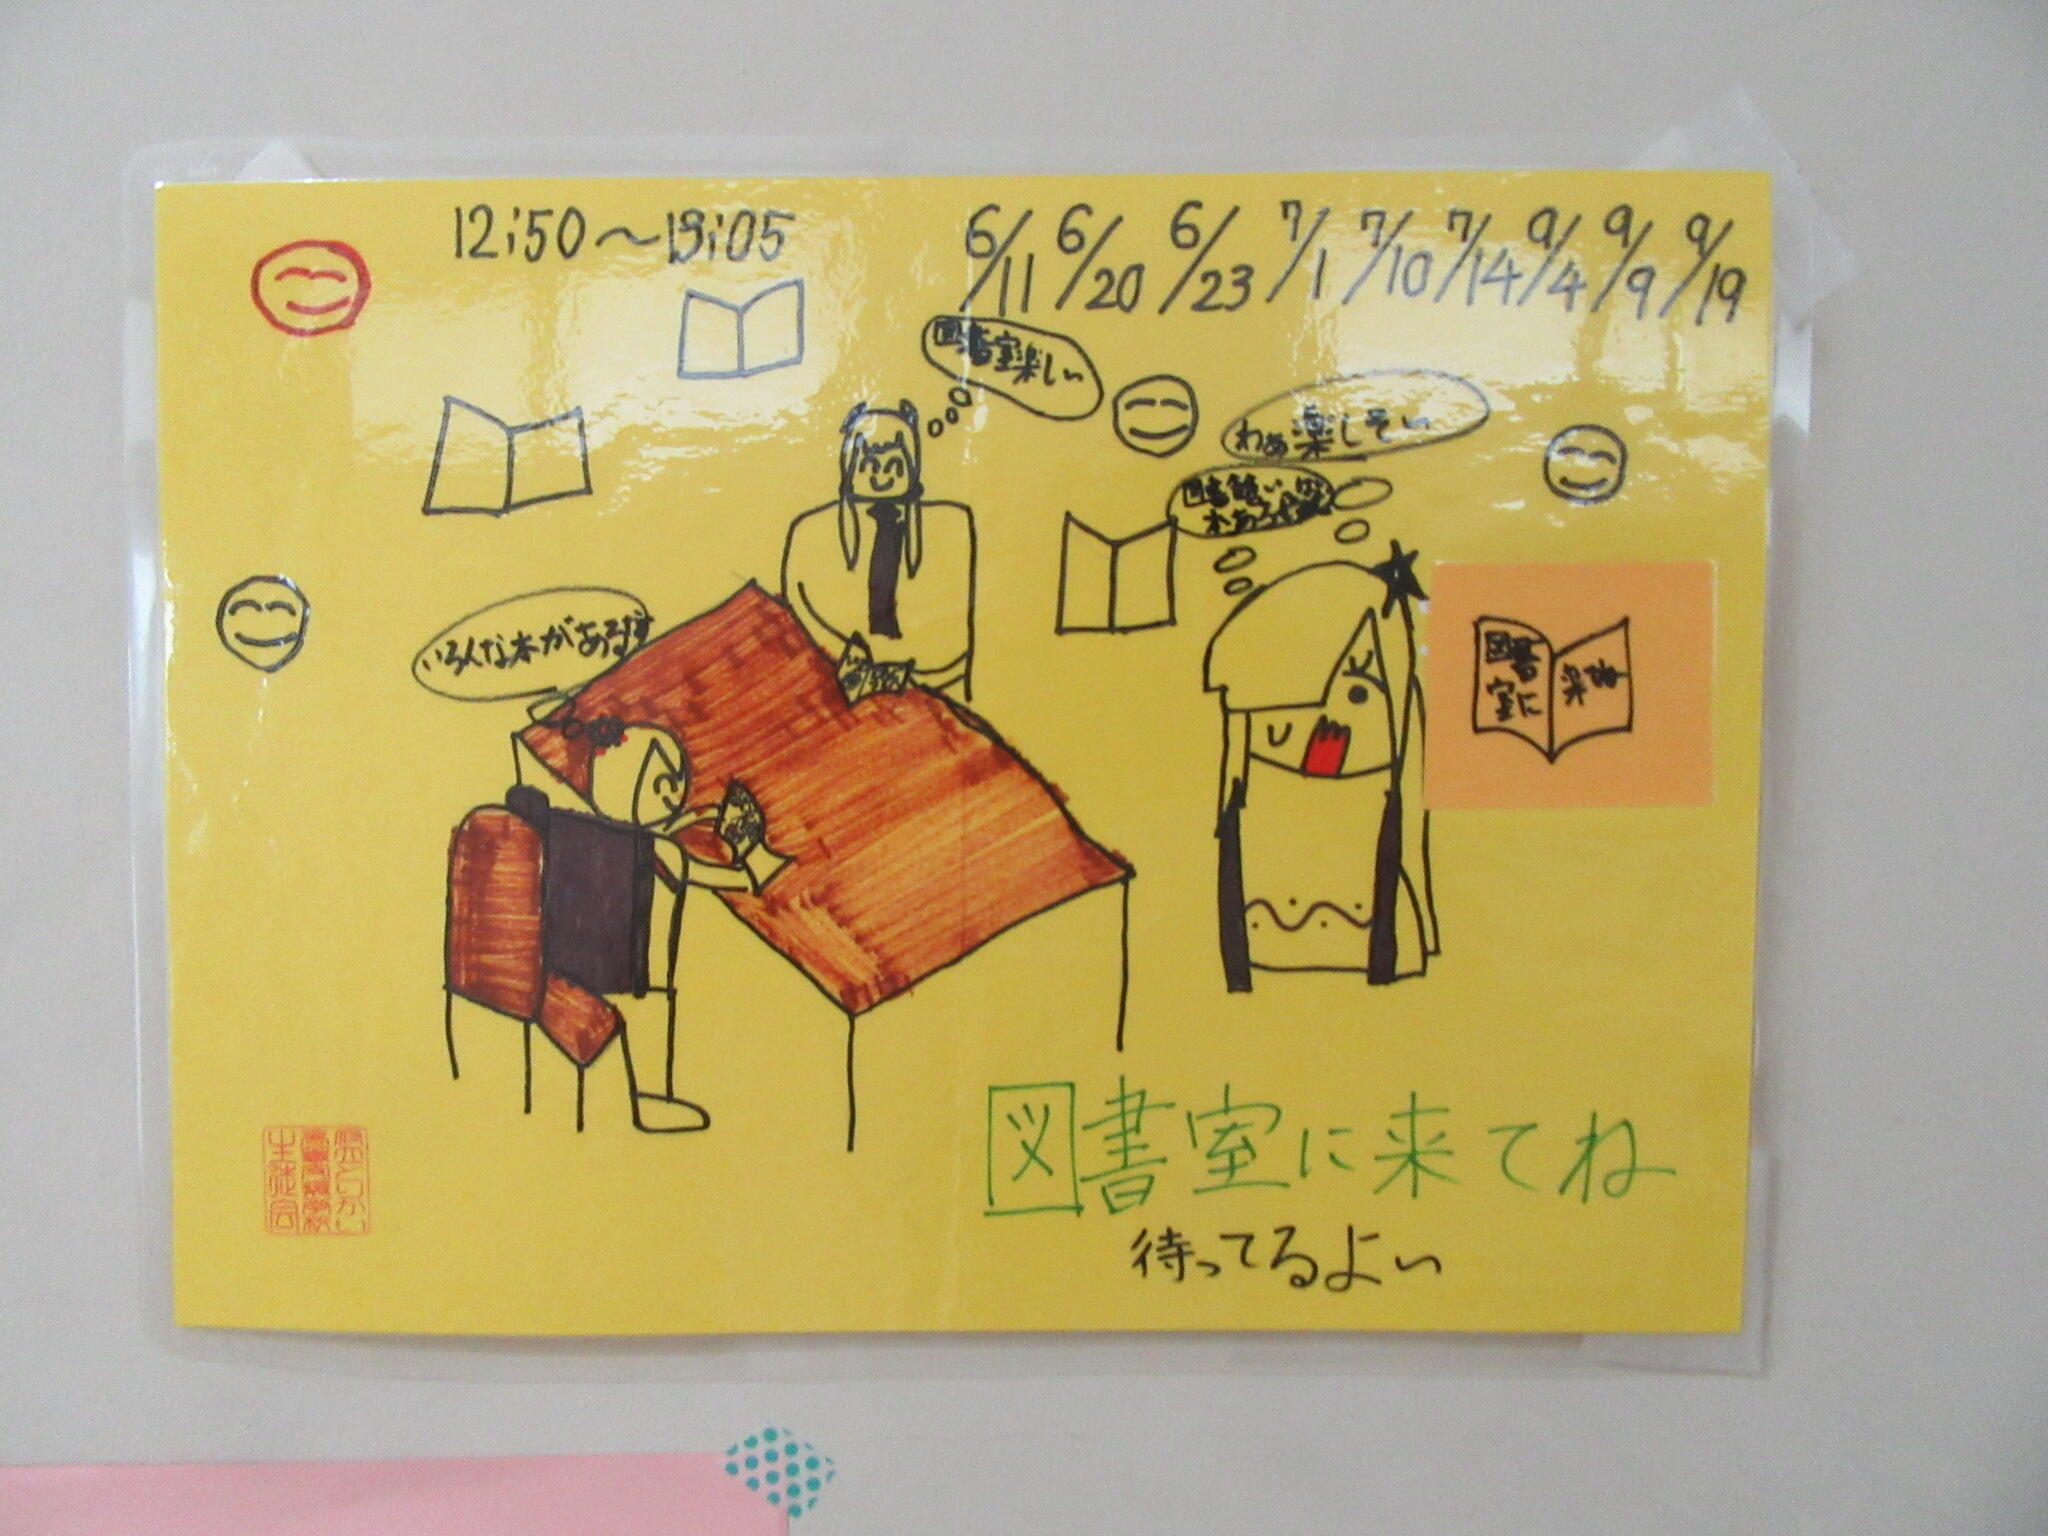 12:50〜13:05
6/11 6/20 6/23 7/1 7/10 7/14 9/4 9/9 9/19
図書室楽しい
わぁ楽しそい
いろんな本があるなす
図書
室に
図書室に来てね
待ってるよい
生徒会